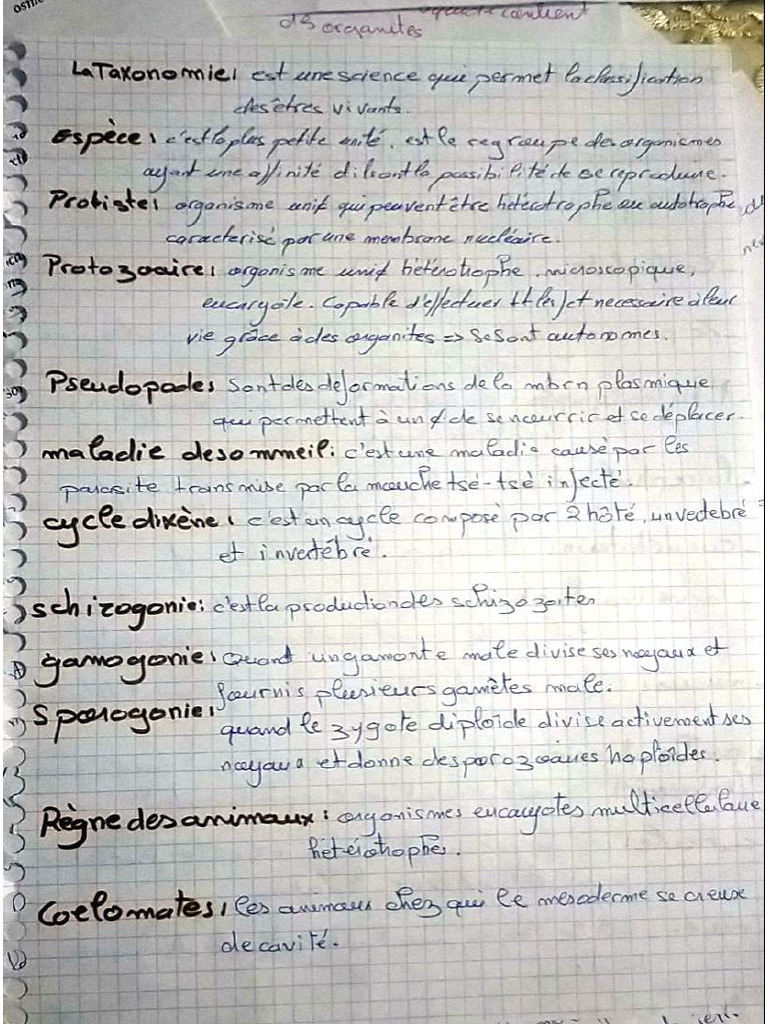 contient
ds organites
La Taxonomie, est une science qui permet la classification
des êtres vivants.
Espèce, c'est la plus petite unité, est le regroupe des organismes
ayant une affinité disont la possibilité de se reproduire.
Protiste, organisme unif qui peuvent être hétérotrophe ou autotrophe,
caracterisé par une membrane nucléaire.
Protozoaire, organisme unif hétérotrophe, microscopique,
eucaryote. Capable d'effectuer tt les fct necessaire à leur
vie grâce à des organites => Se sont autonomes.
Pseudopodes, sont des deformations de la mbrn plasmique
qui permettent à un ¢ de se nourrir et se déplacer.
maladie de sommeil: c'est une maladie causé par les
parasite transmise par la mouche tsé-tsé injecté.
cycle dixène, c'est un cycle composé par 2 hôté, un vedebré
et invertébré.
schizogonie: c'est la production des schizozoites
gamogonie, Quand un gamonte male divise ses noyaux et
fournis plusieurs gamètes male.
Sporogonie, quand le zygote diploïde divise activement ses
noyaux et donne des porozoaïres haploïdes.
Règne des animaux: organismes eucayotes multicellulaire
hétérotrophe.
Coelomates, les animaux chez qui le mésoderme se creuse
de cavité.